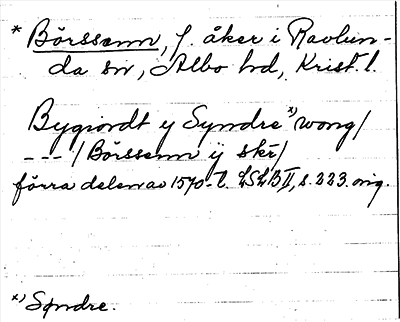 * Börssenn, f. åker i Ravlun-
da sn, Albo hd, Krist. l.
Bygiordt y Syndre *) wong/
--- / Börssenn ÿ skr/
förra delen av 1570-t. LSLB II, s. 223. orig.
*) Sÿndre.